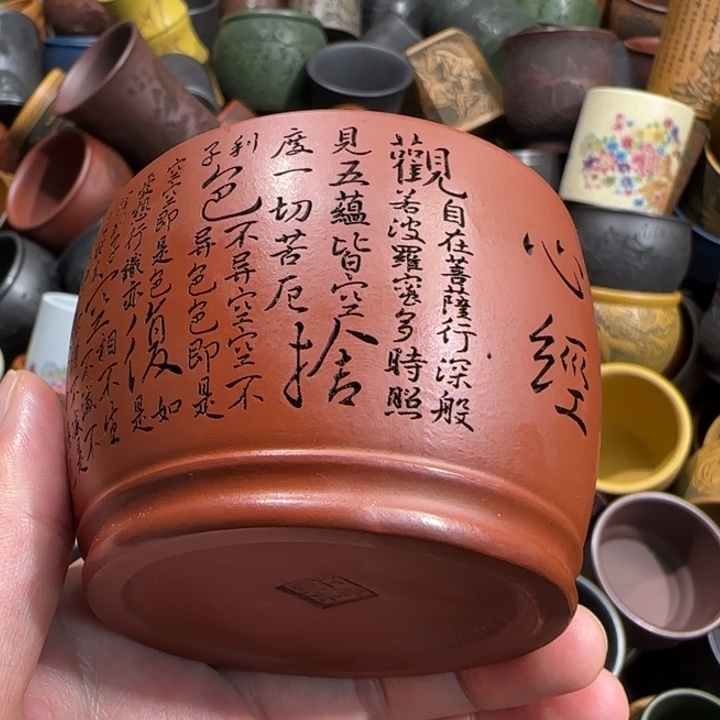 心經
觀自在菩薩行深般
若波羅蜜多時照
見五蘊皆空
度一切苦厄捨
利子色不异空空不
异色色即是
空空即是色
受想行識亦復如是
空相不生
不滅不